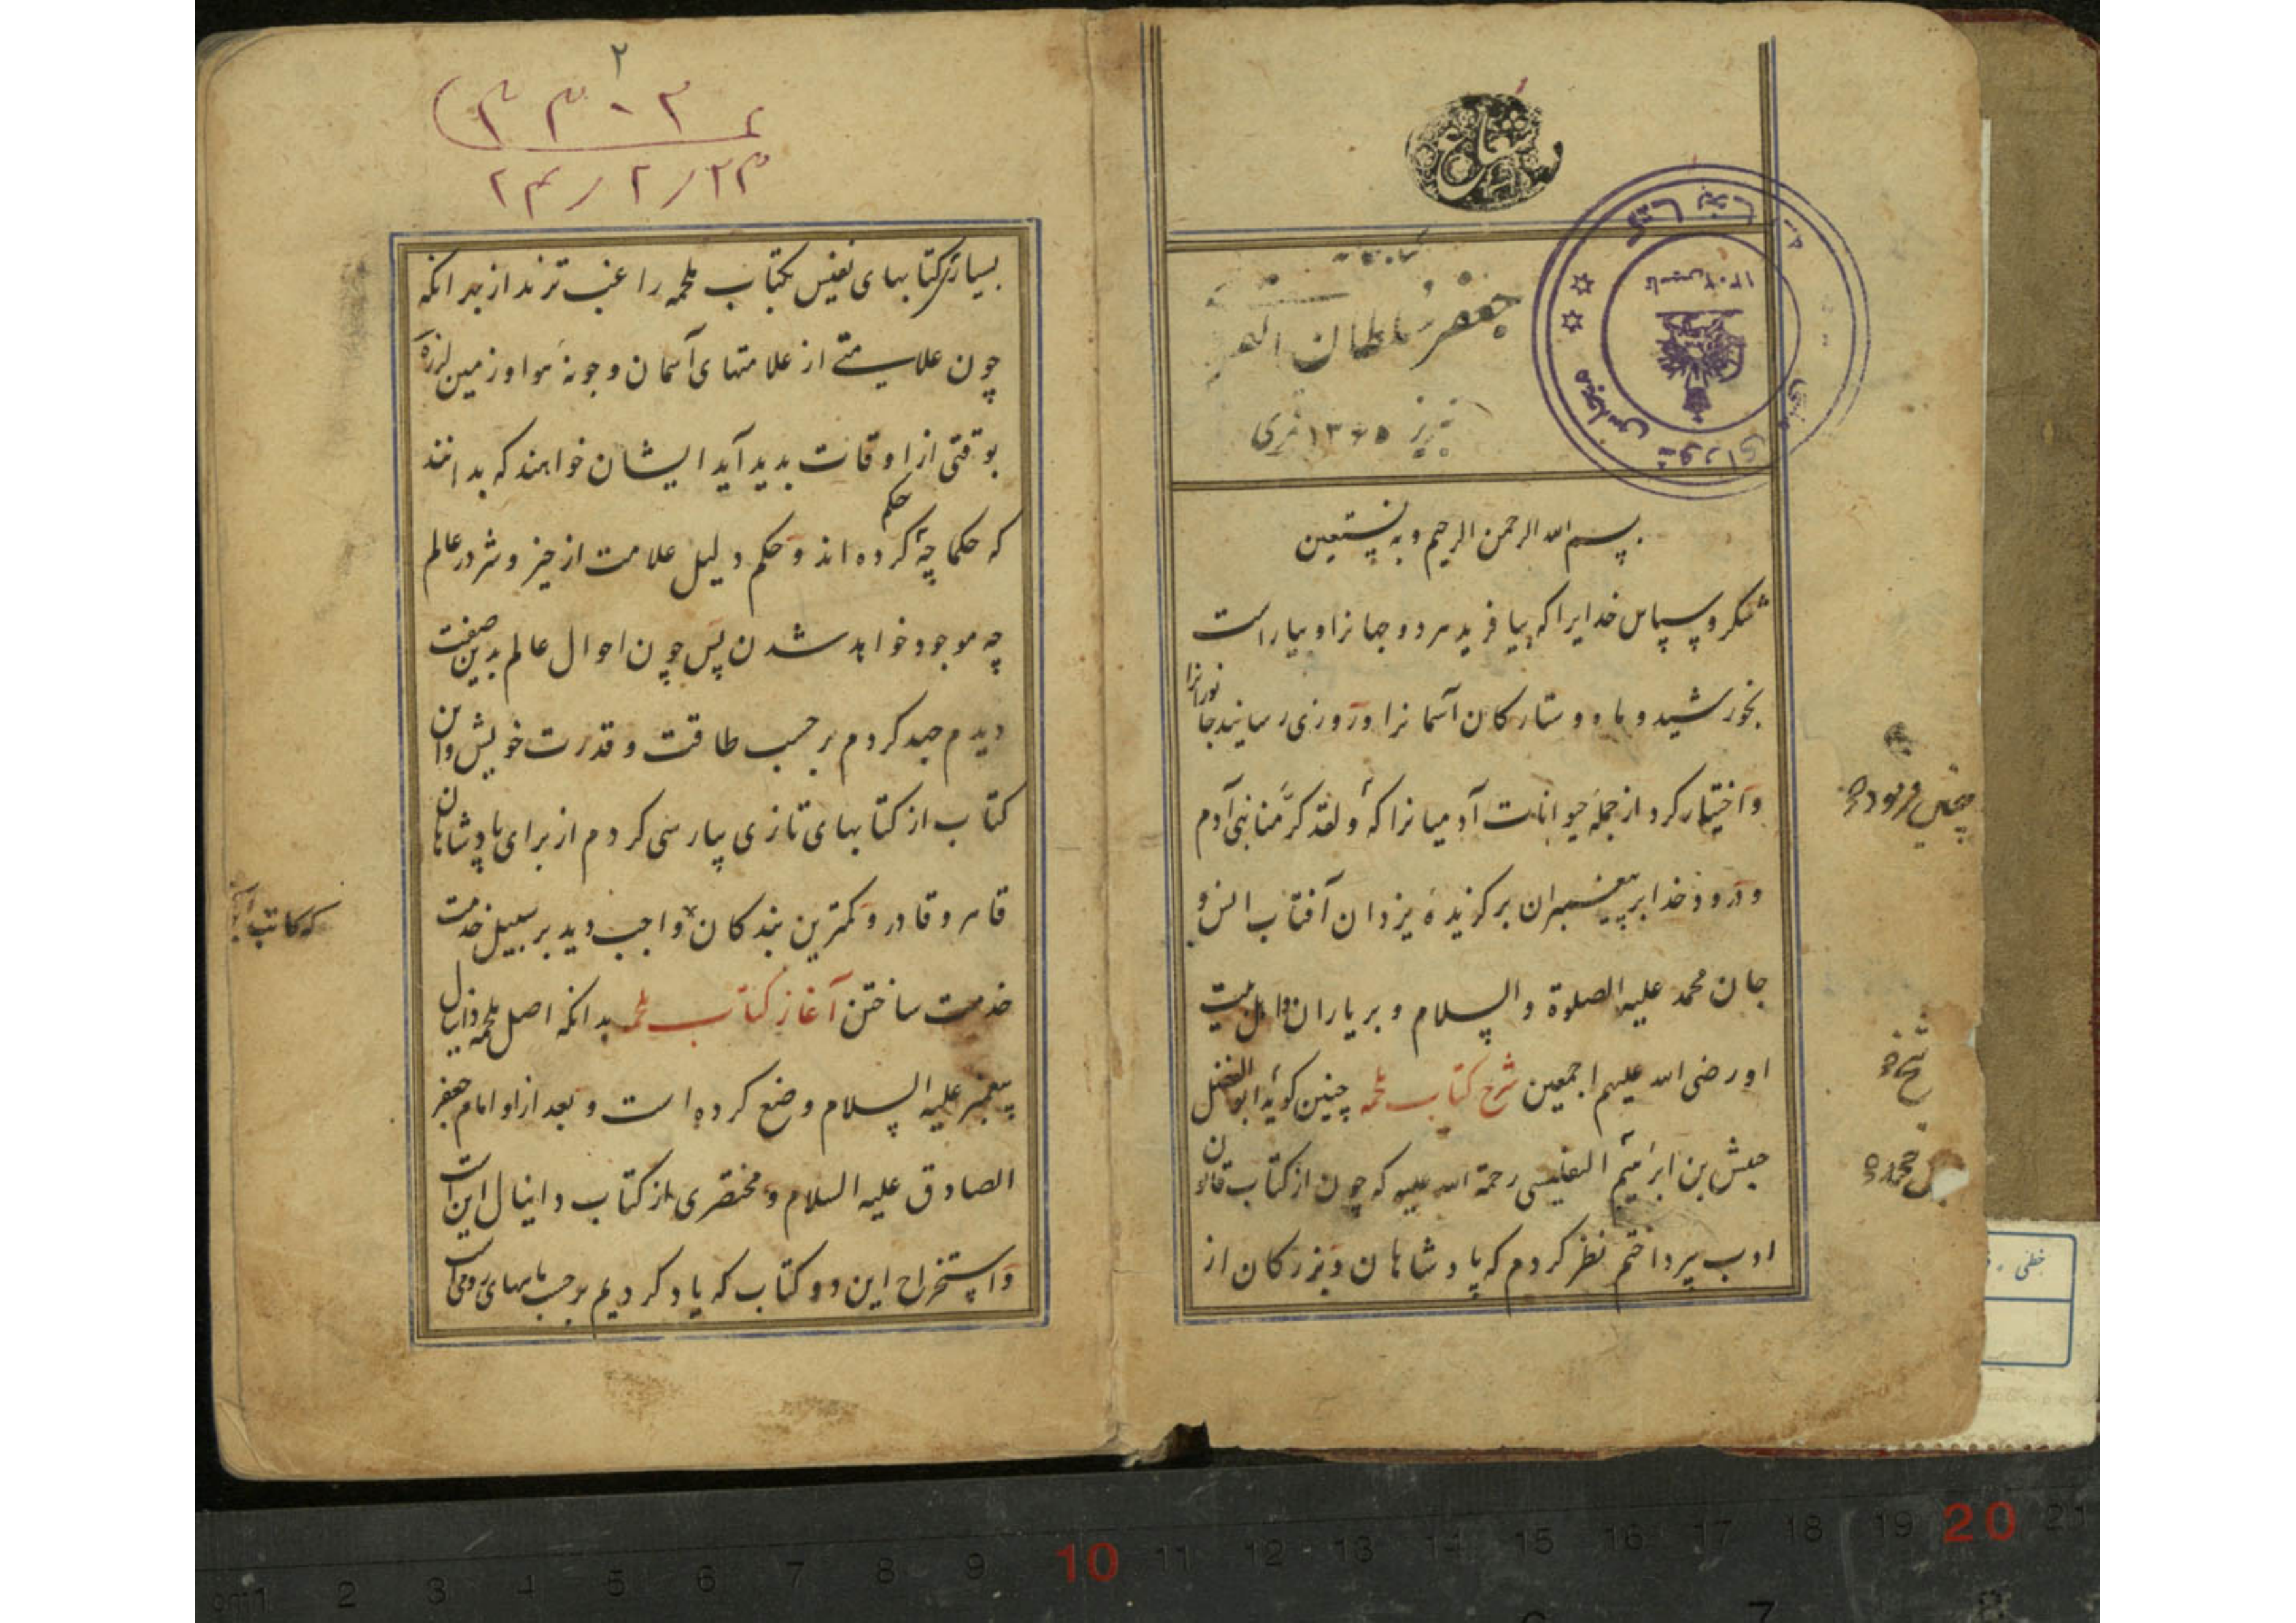 جعفر سلطان القرائی
تبریز ۱۳۶۵ قمری
کتابخانه مجلس شورای ملی
تاسیس ۱۳۰۲
بسم الله الرحمن الرحیم و به نستعین
شکر و سپاس خدایرا که بیافرید هر دو جهانرا و بیاراست
بخورشید و ماه و ستارکان آسمانرا و روزی رسانید جانورانرا
و اختیار کرد از جمله حیوانات آدمیانرا که و لقد کرّمنا بنی آدم
و درود خدا بر پیغمبران برکزیدهٔ یزدان آفتاب انس و
جان محمد علیه الصلوة و السلام و بر یاران و اهل بیت
او رضی الله علیهم اجمعین شرح کتاب ملحمه چنین کوید ابوالفضل
حبیش بن ابرهیم التفلیسی رحمة الله علیه که چون از کتاب قانون
ادب پرداختم نظر کردم که پادشاهان و بزرکان از
چنین فرموده
شرح
۲
۲۳/۲/۲۴
بسیار کتابهای نفیس بکتاب ملحمه راغب ترند از بهر انکه
چون علامتی از علامتهای آسمان و جونه هوا و زمین لرزه
بوقتی از اوقات بدید آید ایشان خواهند که بدانند
که حکما چه حکم کرده اند و حکم دلیل علامت از خیر و شر در عالم
چه موجود خواهد شدن پس چون احوال عالم بدین صفت
دیدم جهد کردم بر حسب طاقت و قدرت خویش و این
کتاب از کتابهای تازی پپارسی کردم از برای پادشاهان
قاهر و قادر و کمترین بندکان واجب دید بر سبیل خدمت
خدمت ساختن آغاز کتاب ملحمه بدانکه اصل ملحمه دانیال
پیغمبر علیه السلام وضع کرده است و بعد از او امام جعفر
الصادق علیه السلام و مختصری از کتاب دانیال این است
و استخراج این دو کتاب که یاد کردیم بر حسب ماههای رومی است
که کاتب
خطی